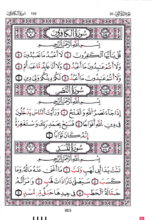 سُورَةُ الكَافِرُونَ
بِسْمِ اللَّهِ الرَّحْمَٰنِ الرَّحِيمِ
قُلْ يَٰٓأَيُّهَا ٱلْكَٰفِرُونَ ١ لَآ أَعْبُدُ مَا تَعْبُدُونَ ٢
وَلَآ أَنتُمْ عَٰبِدُونَ مَآ أَعْبُدُ ٣ وَلَآ أَنَا۠ عَابِدٌ مَّا عَبَدتُّمْ ٤
وَلَآ أَنتُمْ عَٰبِدُونَ مَآ أَعْبُدُ ٥ لَكُمْ دِينُكُمْ وَلِىَ دِينِ ٦
سُورَةُ النَّصْرِ
بِسْمِ اللَّهِ الرَّحْمَٰنِ الرَّحِيمِ
إِذَا جَآءَ نَصْرُ ٱللَّهِ وَٱلْفَتْحُ ١ وَرَأَيْتَ ٱلنَّاسَ يَدْخُلُونَ
فِى دِينِ ٱللَّهِ أَفْوَاجًا ٢ فَسَبِّحْ بِحَمْدِ رَبِّكَ وَٱسْتَغْفِرْهُ
إِنَّهُۥ كَانَ تَوَّابًۢا ٣
سُورَةُ المَسَدِ
بِسْمِ اللَّهِ الرَّحْمَٰنِ الرَّحِيمِ
تَبَّتْ يَدَآ أَبِى لَهَبٍ وَتَبَّ ١ مَآ أَغْنَىٰ عَنْهُ مَالُهُۥ وَمَا
كَسَبَ ٢ سَيَصْلَىٰ نَارًا ذَاتَ لَهَبٍ ٣ وَٱمْرَأَتُهُۥ
حَمَّالَةَ ٱلْحَطَبِ ٤ فِى جِيدِهَا حَبْلٌ مِّن مَّسَدٍۭ ٥
603